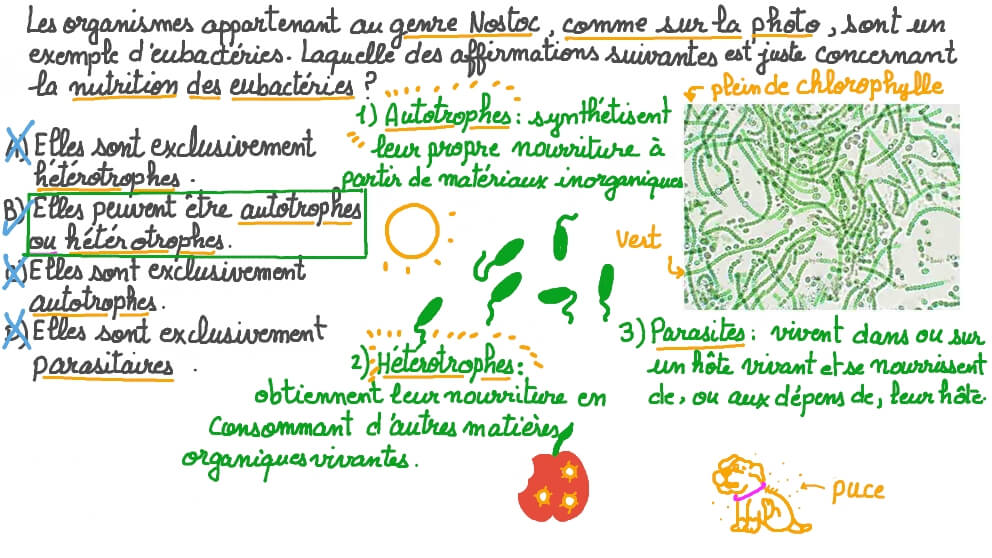 Les organismes appartenant au genre Nostoc, comme sur la photo, sont un
exemple d'eubactéries. Laquelle des affirmations suivantes est juste concernant
la nutrition des eubactéries ?
A) Elles sont exclusivement
hétérotrophes.
B) Elles peuvent être autotrophes
ou hétérotrophes.
C) Elles sont exclusivement
autotrophes.
D) Elles sont exclusivement
parasitaires.
1) Autotrophes : synthétisent
leur propre nourriture à
partir de matériaux inorganiques.
plein de chlorophylle
Vert
2) Hétérotrophes :
obtiennent leur nourriture en
consommant d'autres matières
organiques vivantes.
3) Parasites : vivent dans ou sur
un hôte vivant et se nourrissent
de, ou aux dépens de, leur hôte.
puce